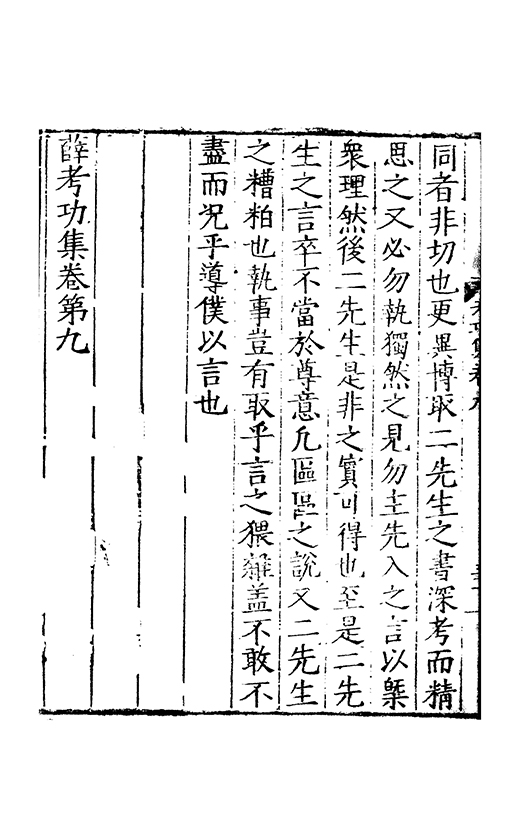 同者非切也更異博取二先生之書深考而精
思之又必勿執獨然之見勿主先入之言以槩
衆理然後二先生是非之實可得也至是二先
生之言卒不當於尊意凡區區之說又二先生
之糟粕也執事豈有取乎言之猥雜盖不敢不
盡而况乎導僕以言也
薛考功集卷第九